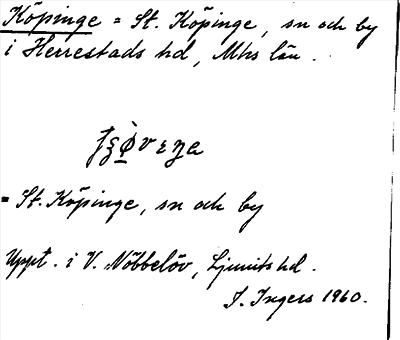 Köpinge = St. Köpinge, sn och by
i Herrestads hd, Mhs län.
= St. Köpinge, sn och by
Uppt. i V. Nöbbelöv, Ljunits hd.
I. Ingers 1960.